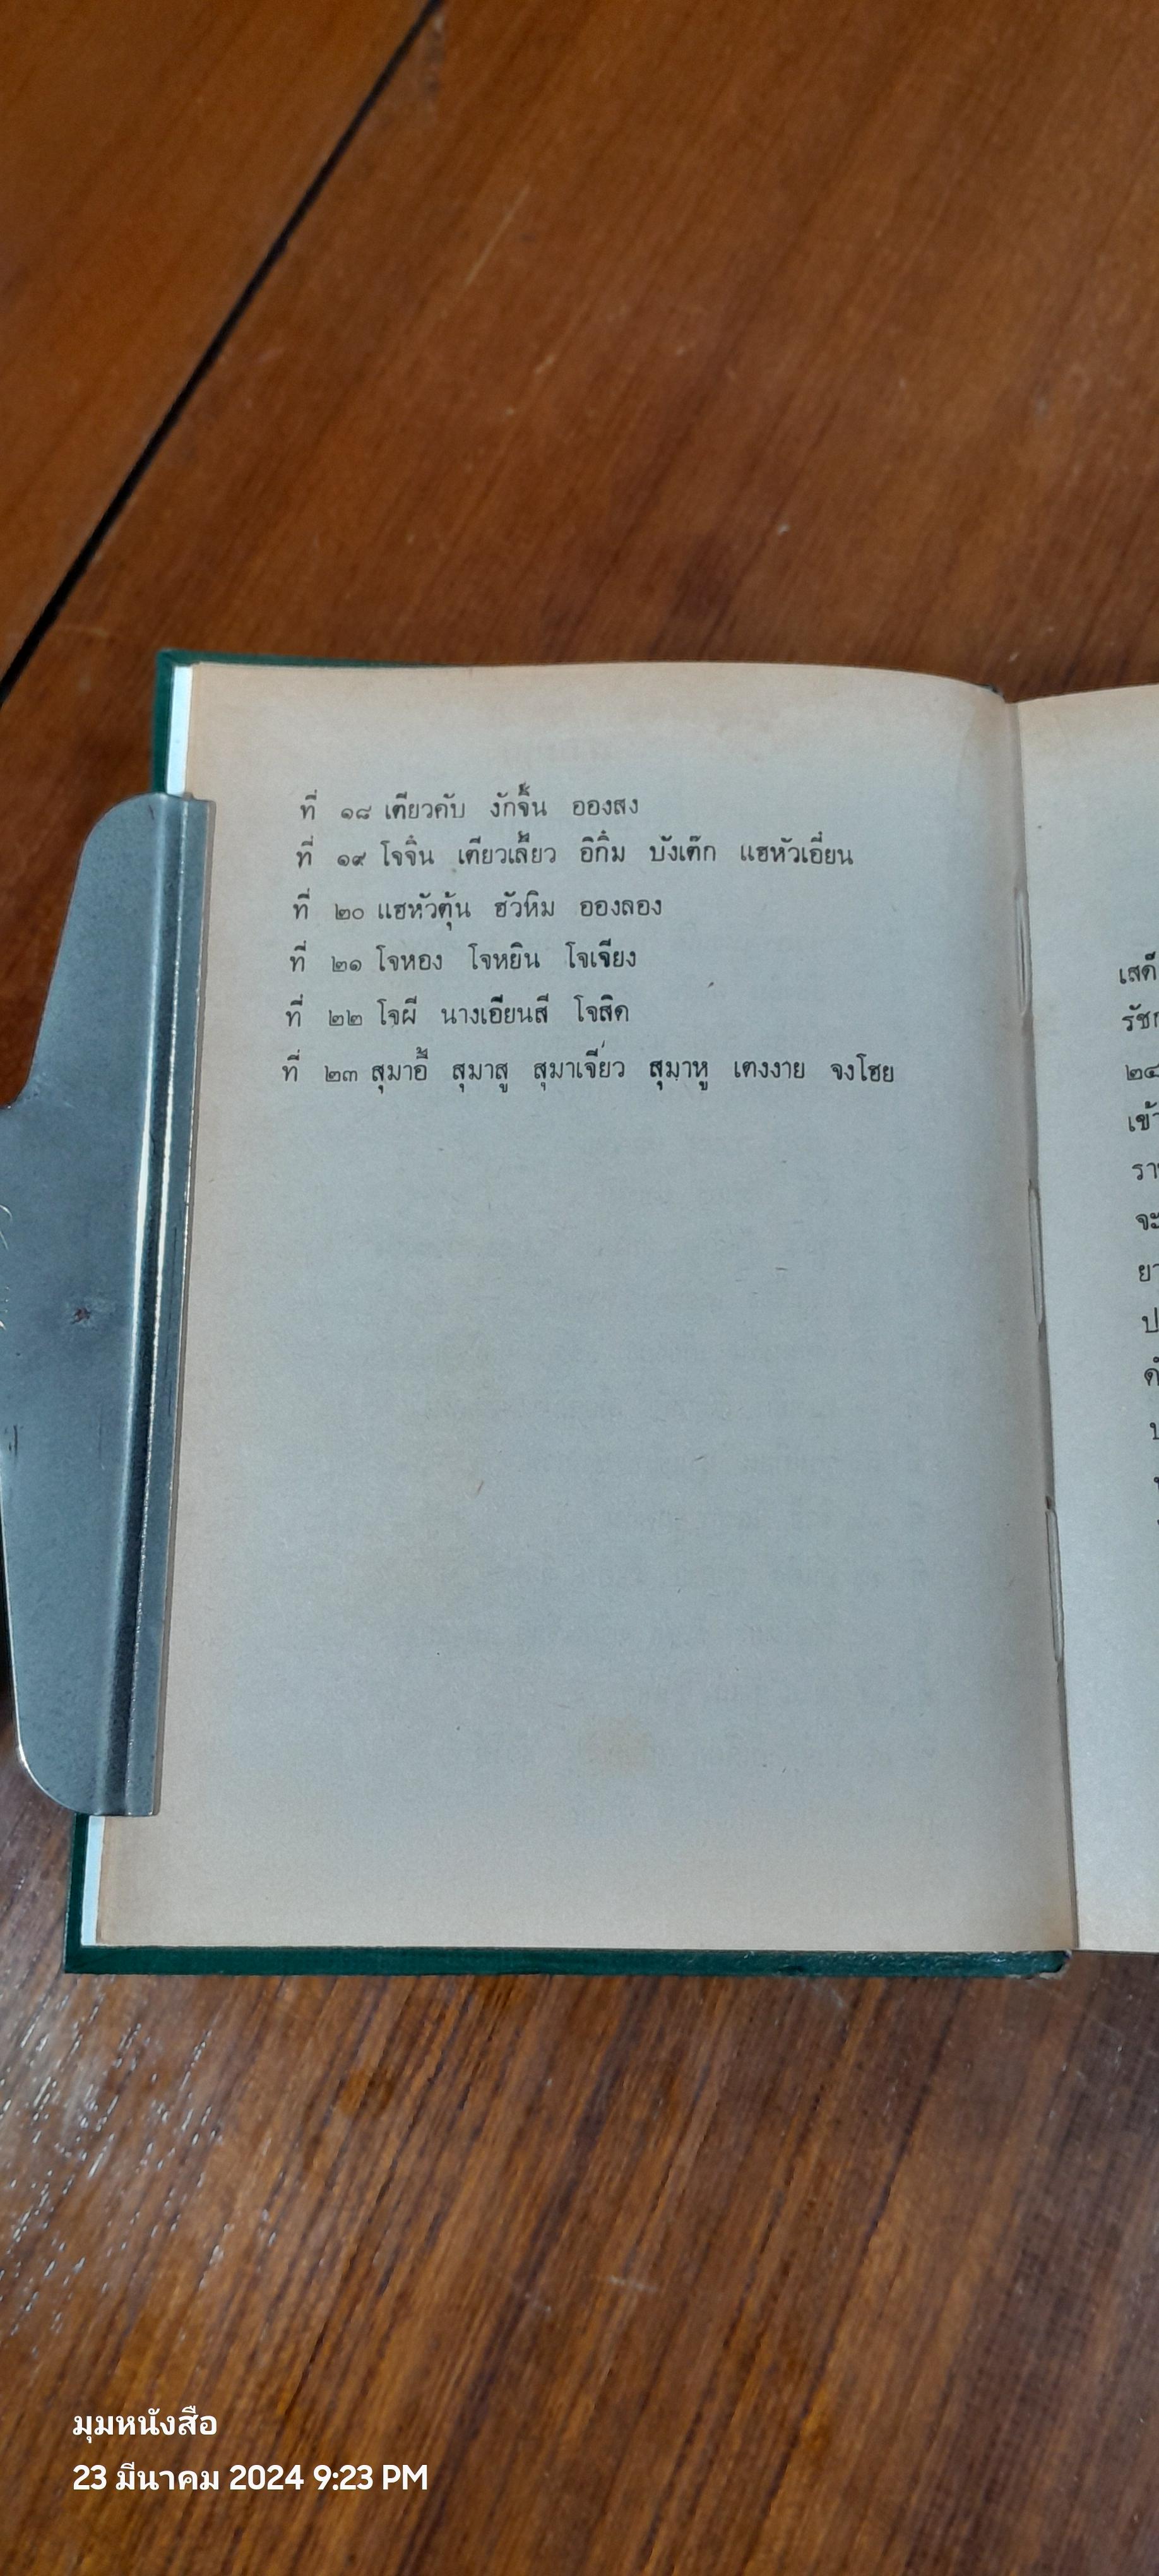 ที่ ๑๘ เตียวคับ งักจิ้น อองสง
ที่ ๑๙ โจจิ๋น เตียวเลี้ยว อิกิ๋ม บังเต๊ก แฮหัวเอี๋ยน
ที่ ๒๐ แฮหัวตุ้น ฮัวหิม อองลอง
ที่ ๒๑ โจหอง โจหยิน โจเจียง
ที่ ๒๒ โจผี นางเอียนสี โจสิด
ที่ ๒๓ สุมาอี้ สุมาสู สุมาเจียว สุมาหู เตงงาย จงโฮย
รัช
๒๔
เข้า
รา
จะ
ยา
มุมหนังสือ
23 มีนาคม 2024 9:23 PM